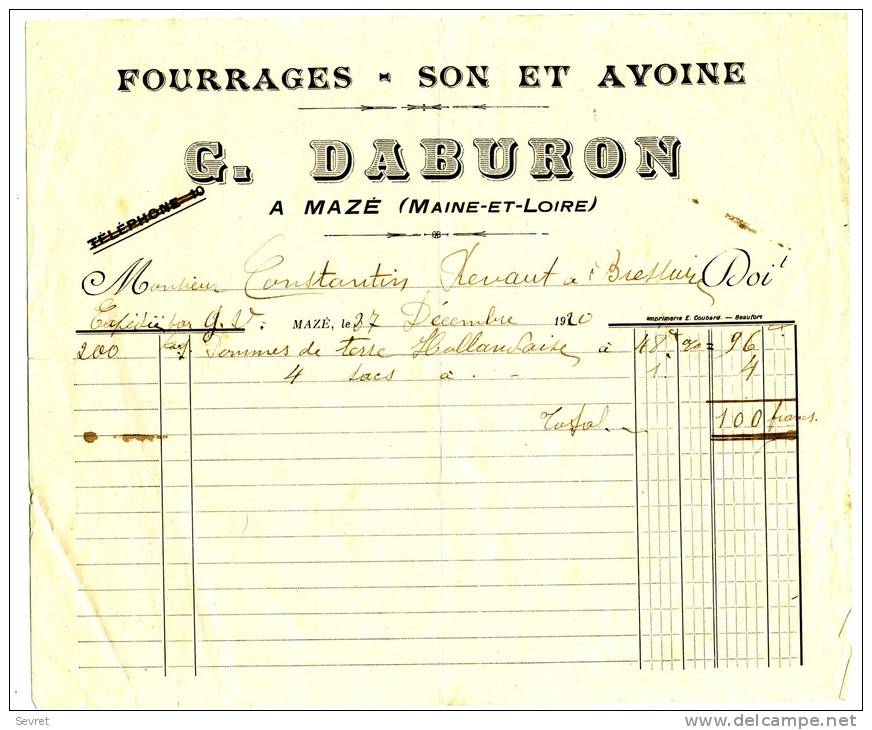 FOURRAGES - SON ET AVOINE
G. DABURON
TÉLÉPHONE 10
A MAZÉ (MAINE-ET-LOIRE)
Monsieur Constantin à Bressuire Doit
Expédié par G. V. MAZÉ, le 27 Décembre 1920
Imprimerie E. Coubard. — Beaufort
200 Pommes de terre Hollandaise à 48 % = 96
4 sacs à 1 4
Total 100 francs.
Sevret
www.delcampe.net